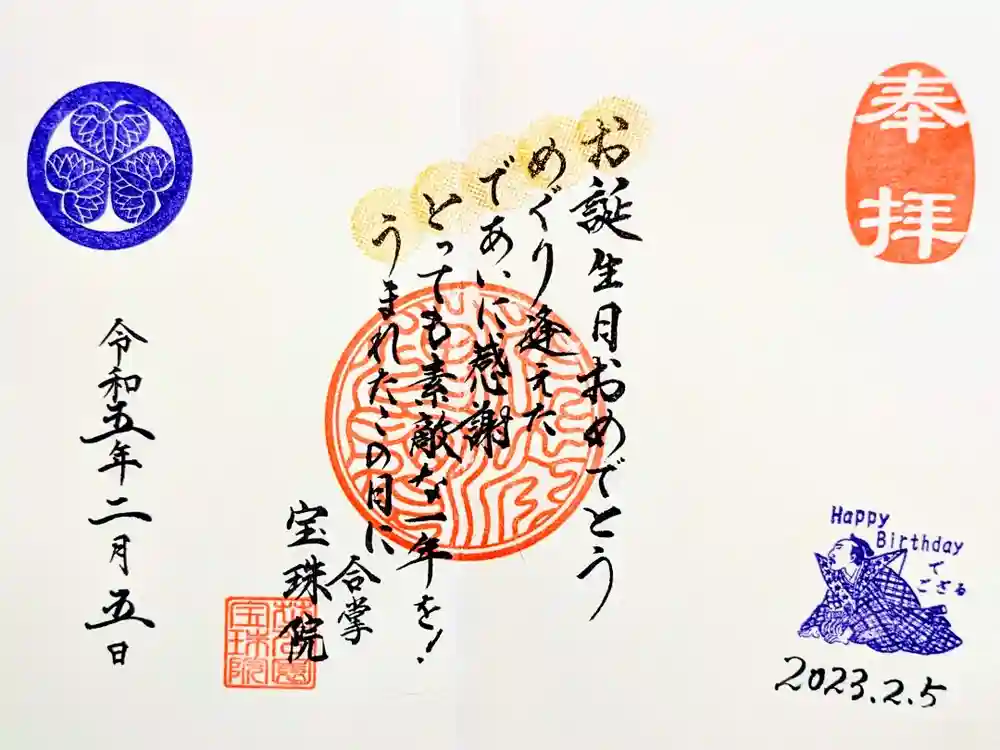 奉拝
お誕生日おめでとう
めぐり逢えた
であいに感謝
とっても素敵な一年を！
うまれたこの日に
合掌
宝珠院
宝珠院
令和五年二月五日
Happy
Birthday
で
ござる
2023.2.5